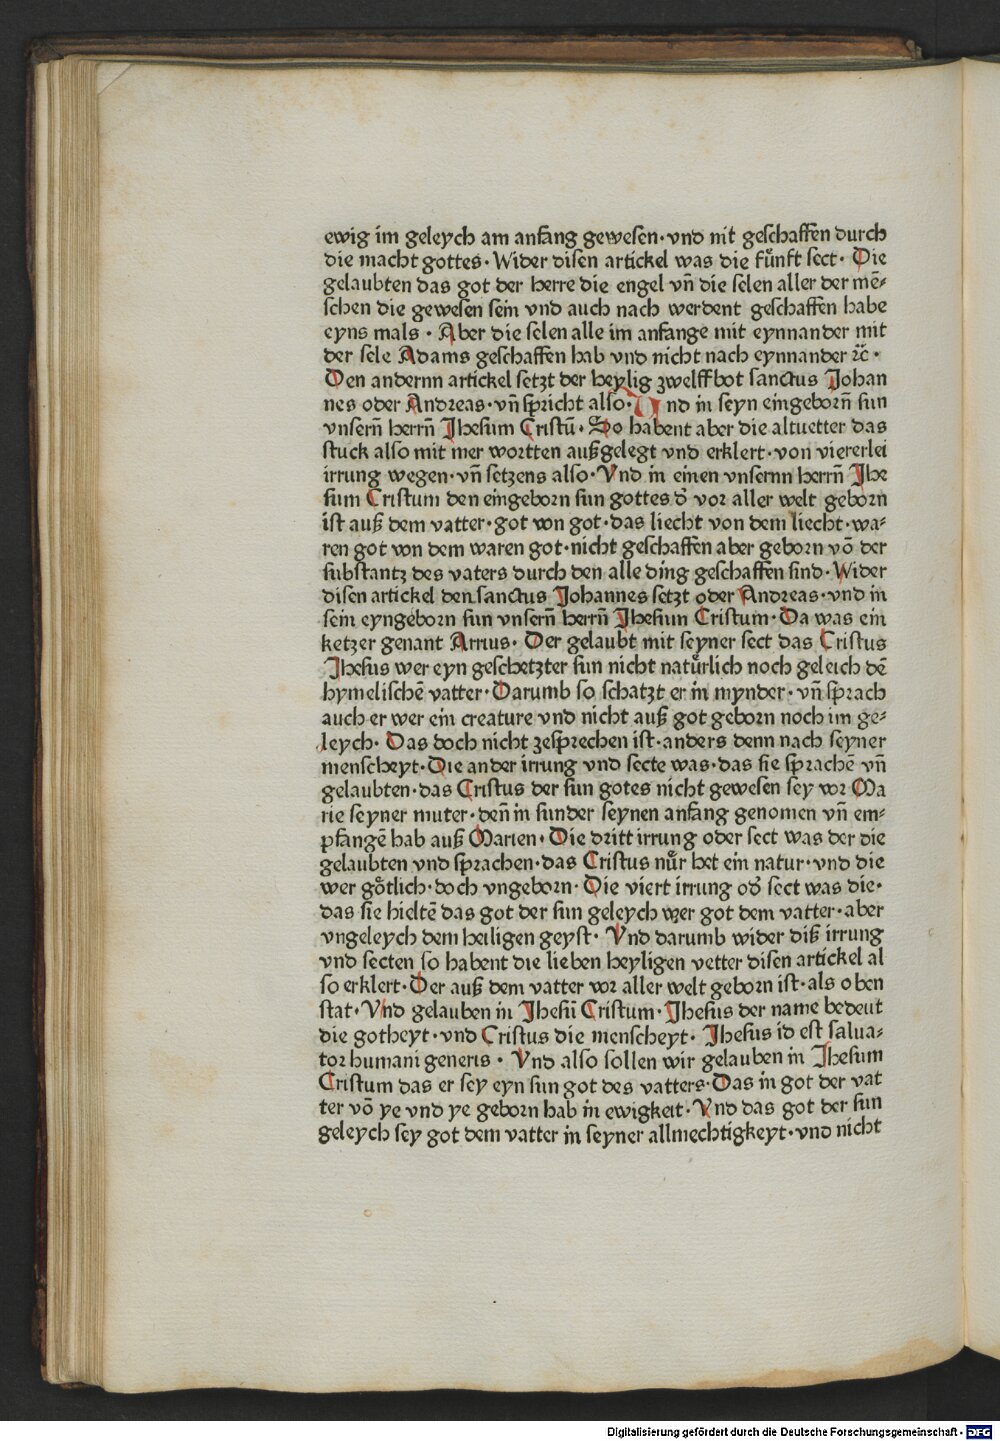 ewig im geleych am anfang gewesen · vnd nit geschaffen durch
die macht gottes · Wider disen artickel was die fünft sect · Die
gelaubten das got der herre die engel vñ die selen aller der mē⸗
schen die gewesen sein vnd auch nach werdent geschaffen habe
eyns mals · Aber die selen alle im anfange mit eynnander mit
der sele Adams geschaffen hab vnd nicht nach eynnander ⁊c̄ ·
Den andernn artickel setzt der heylig zwelffbot sanctus Johan
nes oder Andreas · vñ spricht also · Vnd in seyn eingeborñ sun
vnserñ herrñ Jhesum Cristū · So habent aber die altuetter das
stuck also mit mer wortten außgelegt vnd erklert · von viererlei
irrung wegen · vñ setzens also · Vnd in einen vnsernn herrñ Jhe
sum Cristum den eingeborn sun gottes d̛ vor aller welt geborn
ist auß dem vatter · got von got · das liecht von dem liecht · wa⸗
ren got von dem waren got · nicht geschaffen aber geborn vō der
substantz des vaters durch den alle ding geschaffen sind · Wider
disen artickel den sanctus Johannes setzt oder Andreas · vnd in
sein eyngeborn sun vnserñ herrñ Jhesum Cristum · Da was ein
ketzer genant Arrius · Der gelaubt mit seyner sect das Cristus
Jhesus wer eyn geschetzter sun nicht natürlich noch geleich dē
hymelischē vatter · Darumb so schatzt er in mynder · vñ sprach
auch er wer ein creature vnd nicht auß got geborn noch im ge⸗
leych · Das doch nicht zesprechen ist · anders denn nach seyner
menscheyt · Die ander irrung vnd secte was · das sie sprachē vñ
gelaubten · das Cristus der sun gotes nicht gewesen sey vor Ma
rie seyner muter · deñ in sunder seynen anfang genomen vñ em⸗
pfangē hab auß Marien · Die dritt irrung oder sect was der die
gelaubten vnd sprachen · das Cristus nůr het ein natur · vnd die
wer götlich · doch vngeborn · Die viert irrung od̛ sect was die ·
das sie hieltē das got der sun geleych wer got dem vatter · aber
vngeleych dem heiligen geyst · Vnd darumb wider diß irrung
vnd secten so habent die lieben heyligen vetter disen artickel al
so erklert · Der auß dem vatter vor aller welt geborn ist · als oben
stat · Vnd gelauben in Jhesū Cristum · Jhesus der name bedeut
die gotheyt · vnd Cristus die menscheyt · Jhesus id est salua⸗
tor humani generis · Vnd also sollen wir gelauben in Jhesum
Cristum das er sey eyn sun got des vatters · Das in got der vat
ter vō ye vnd ye geborn hab in ewigkeit · Vnd das got der sun
geleych sey got dem vatter in seyner allmechtigkeyt · vnd nicht
Digitalisierung gefördert durch die Deutsche Forschungsgemeinschaft - DFG